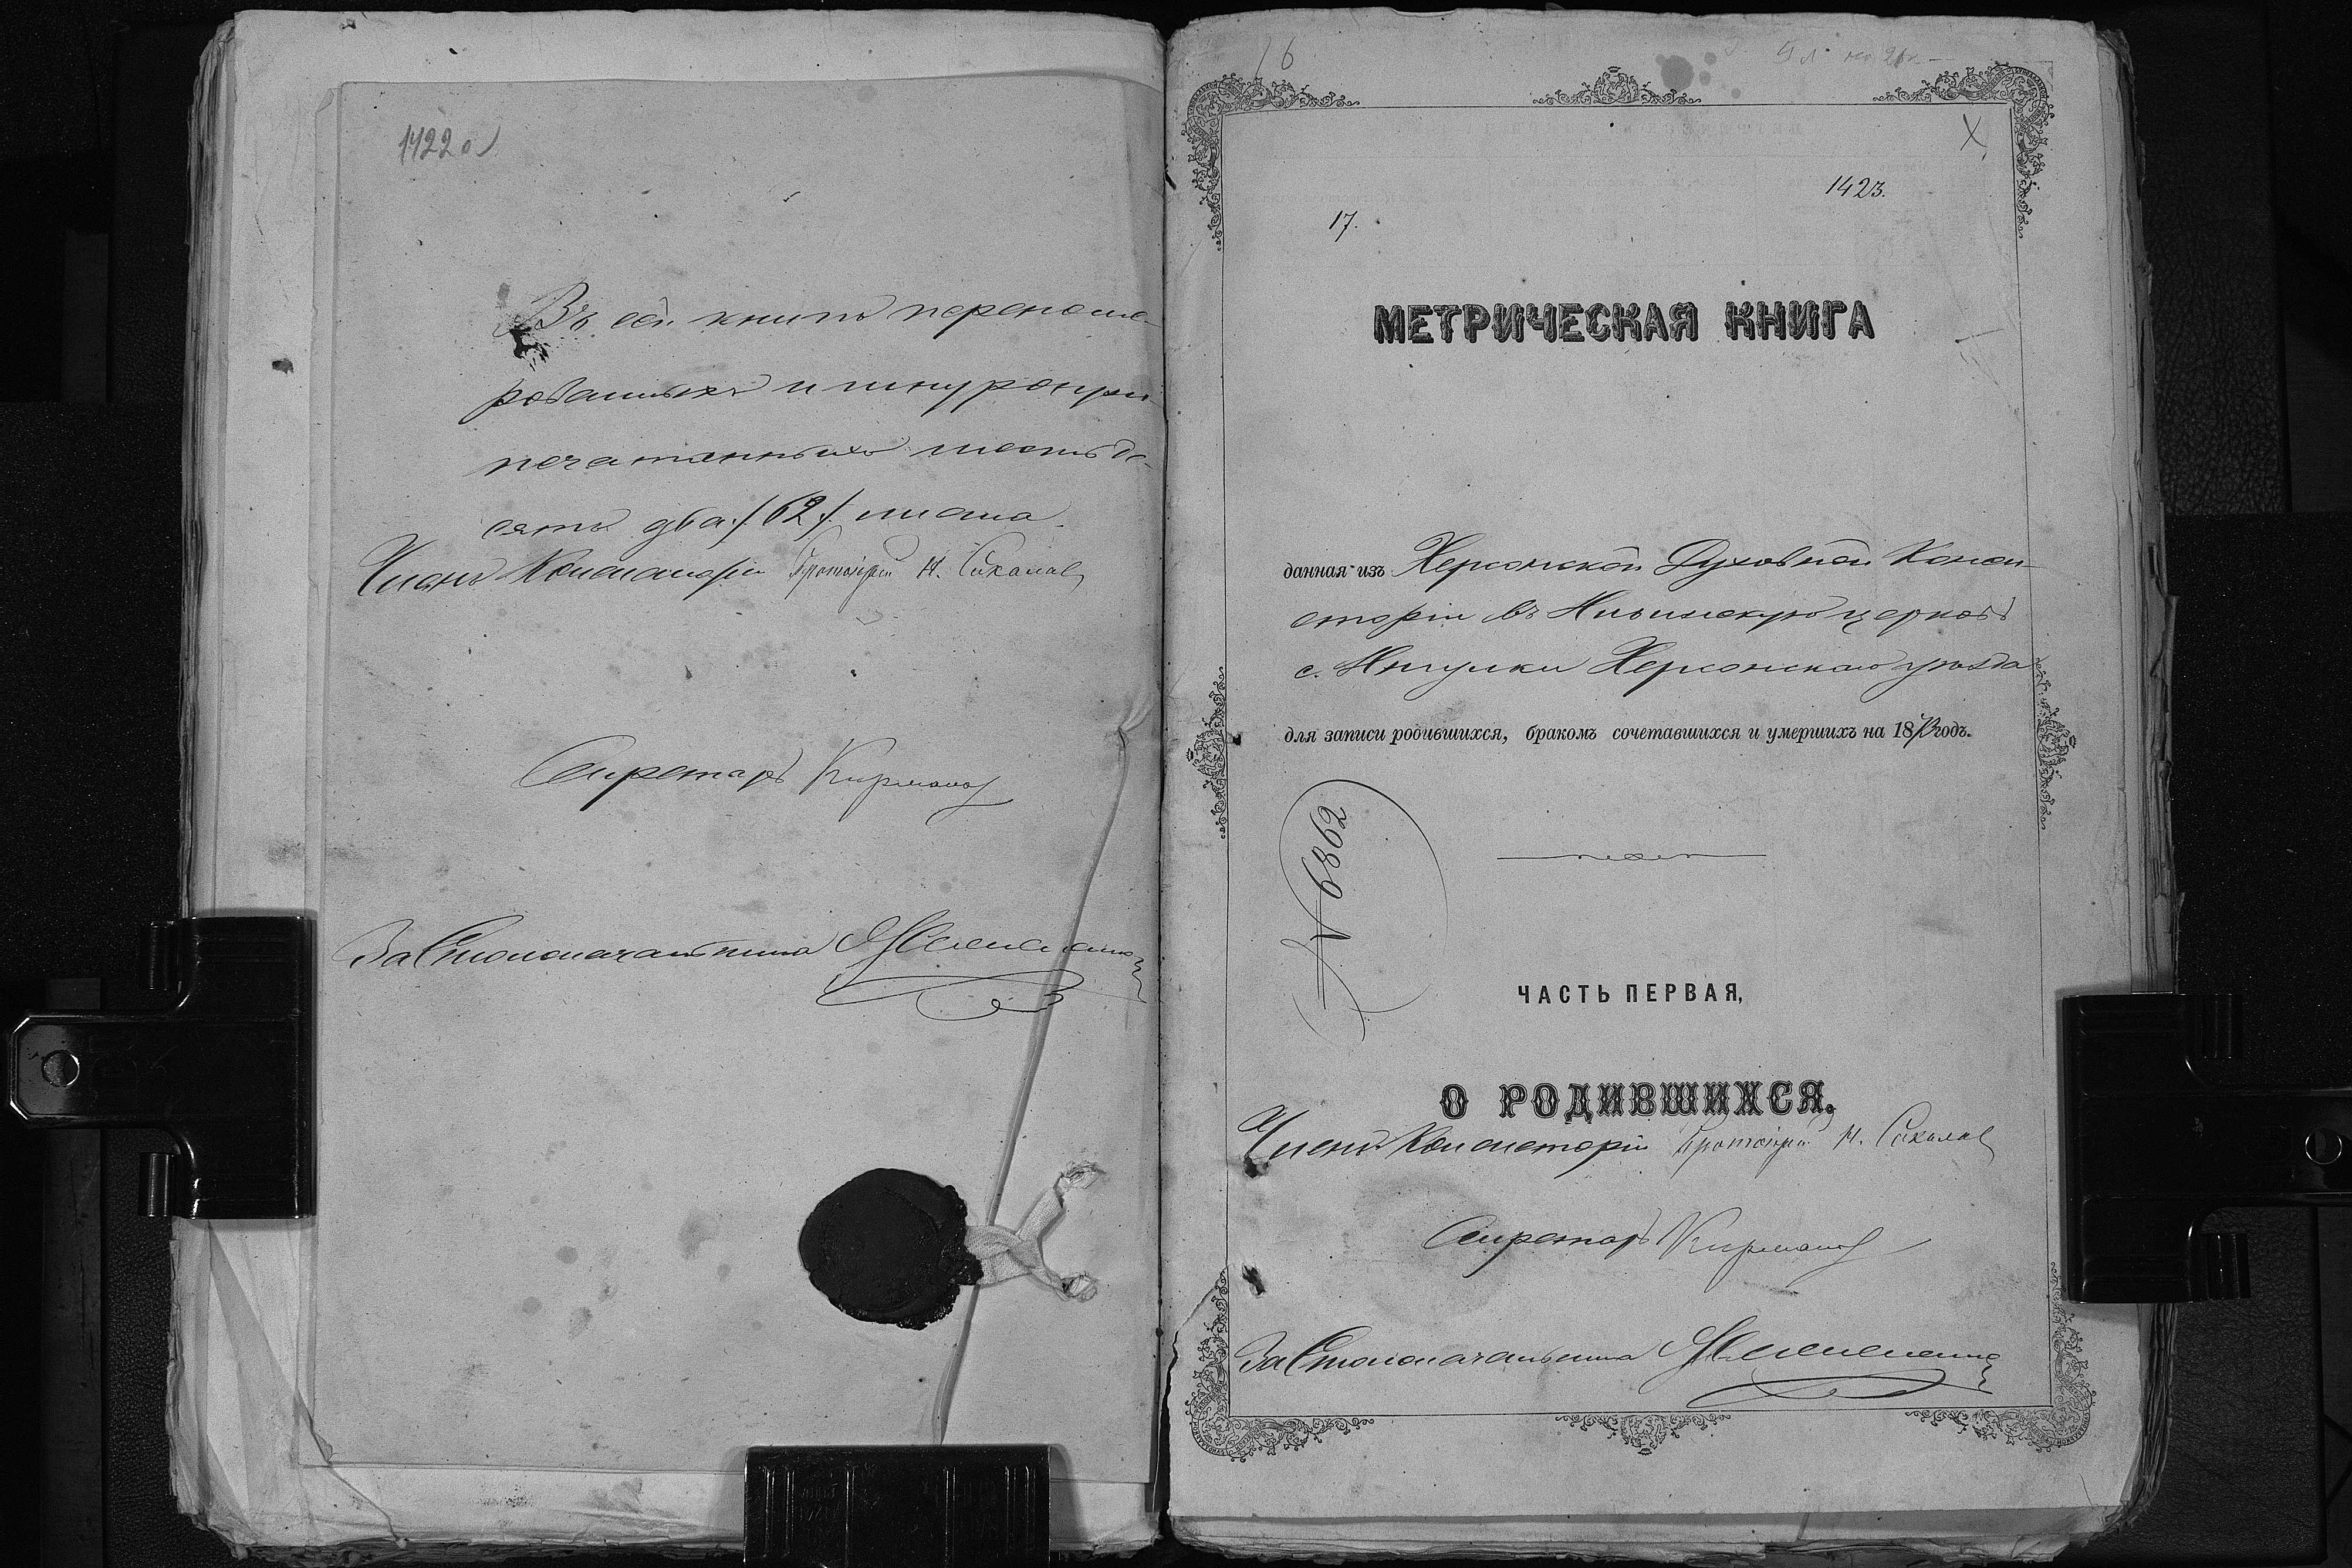 1422 об
Въ сей книге перенуме-
рованныхъ и шнуропри-
печатанныхъ шестьде-
сятъ два /62/ листа.
Членъ Консисторіи Протоіерей Н. Соколов
Секретарь
За Столоначальника
16
X
1423.
17.
МЕТРИЧЕСКАЯ КНИГА
данная изъ Херсонской Духовной Конси-
сторіи въ церковь
с. Херсонскаго уѣзда
для записи родившихся, бракомъ сочетавшихся и умершихъ на 18 годъ.
№ 6862
ЧАСТЬ ПЕРВАЯ,
О РОДИВШИХСЯ.
Членъ Консисторіи Протоіерей Н. Соколов
Секретарь
За Столоначальника